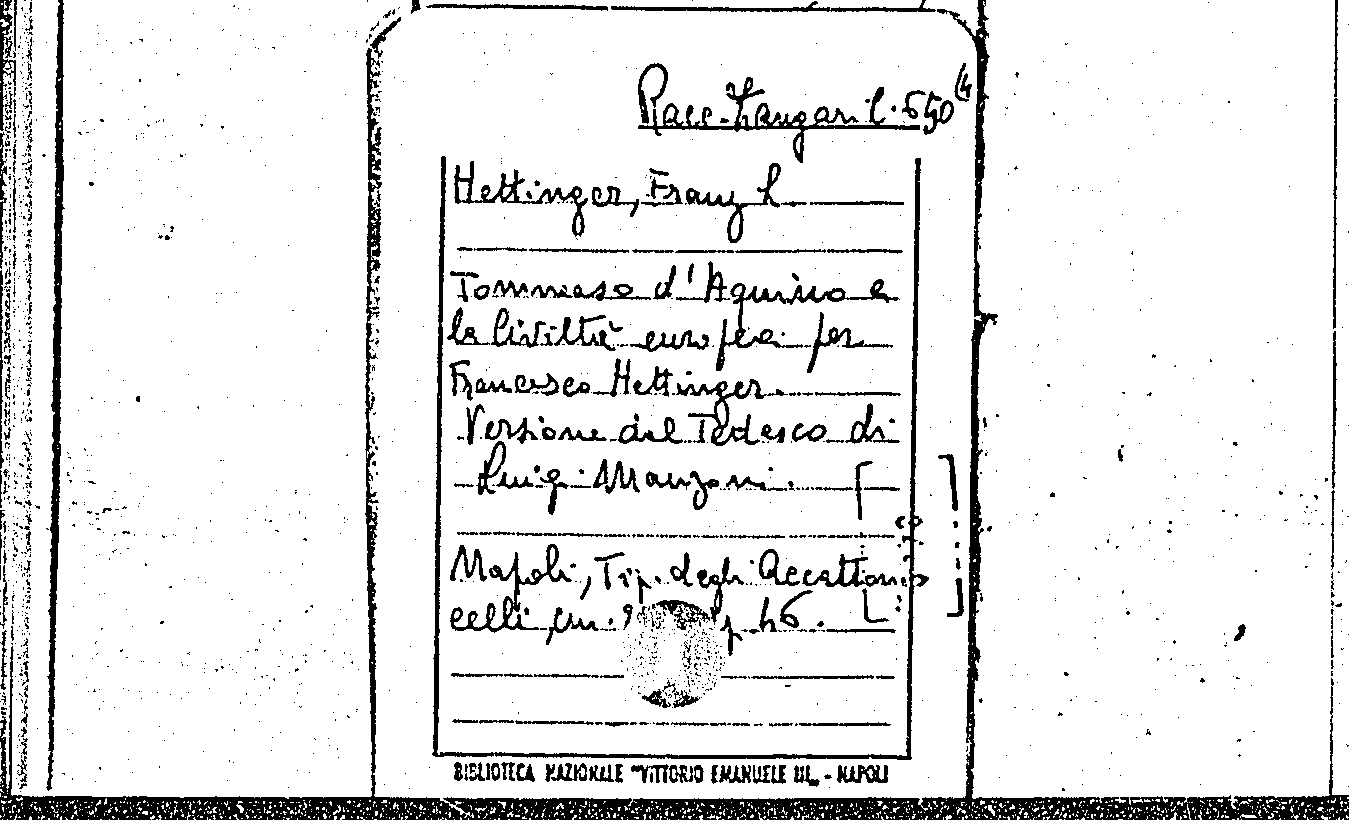 Racc. Zangari C. 550 (4
Hettinger, Franz
Tommaso d'Aquino e
la Civiltà europea per
Francesco Hettinger.
Versione dal Tedesco di
Luigi Manzoni.
Napoli, Tip. degli Accatton-
celli, cm. p. 46.
BIBLIOTECA NAZIONALE "VITTORIO EMANUELE III" - NAPOLI